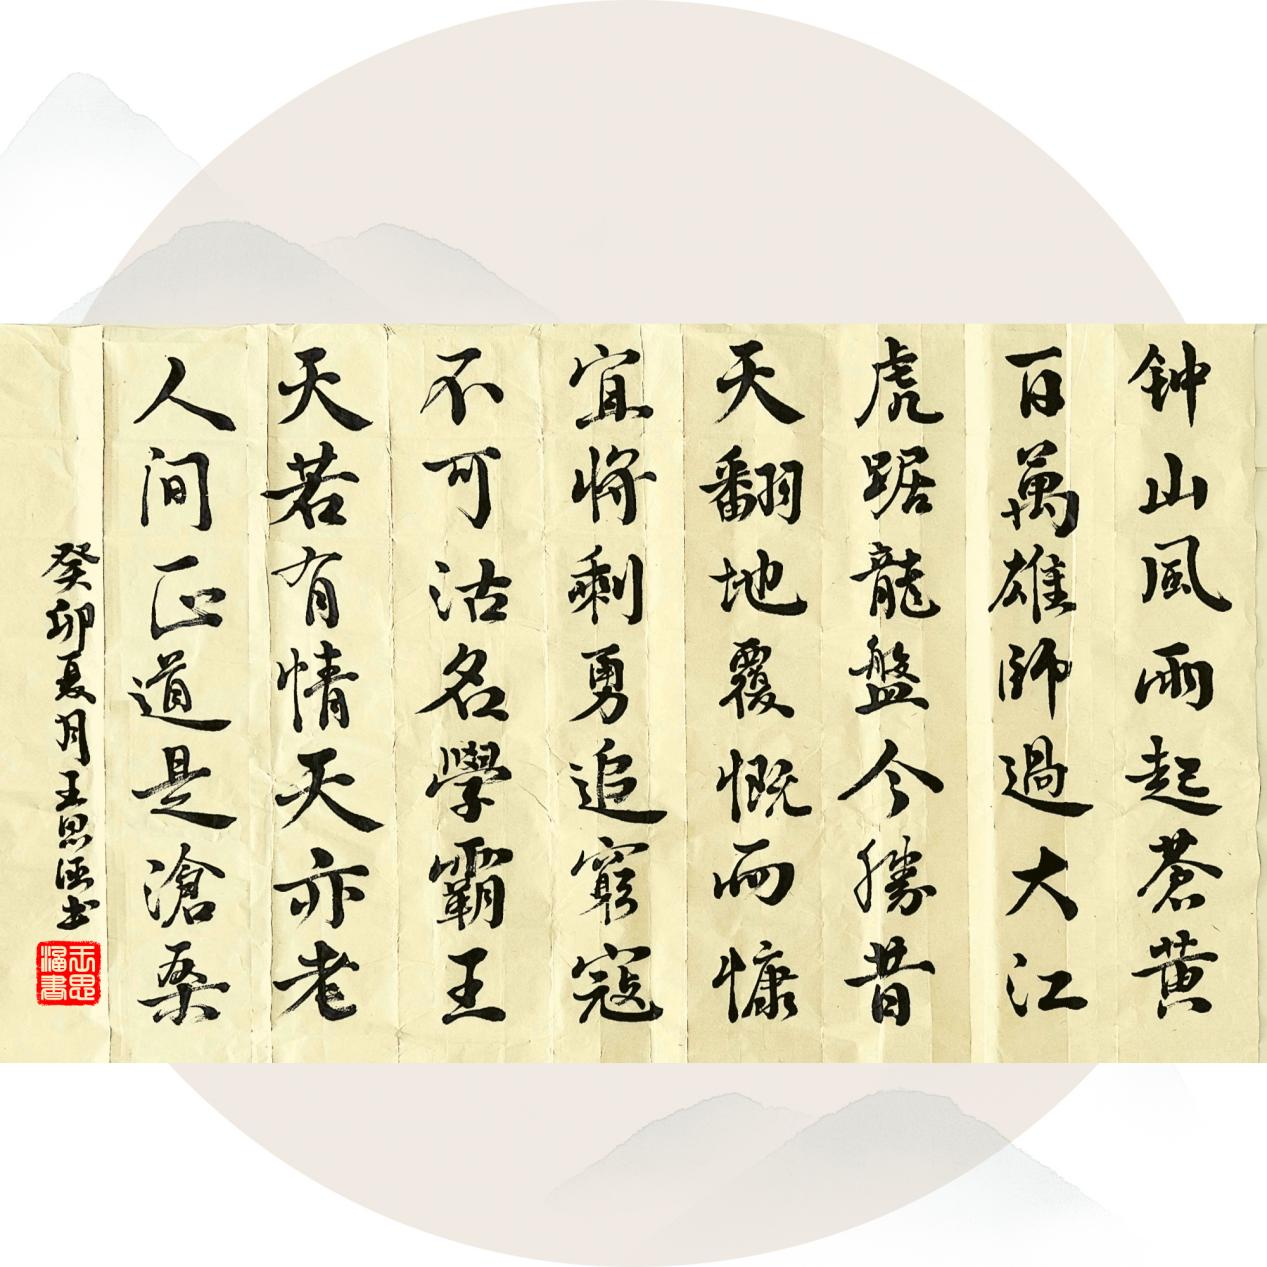 钟山風雨起蒼黄
百萬雄師過大江
虎踞龍盤今勝昔
天翻地覆慨而慷
宜将剩勇追窮寇
不可沽名學霸王
天若有情天亦老
人间正道是滄桑
癸卯夏月王思涵书
王思涵書